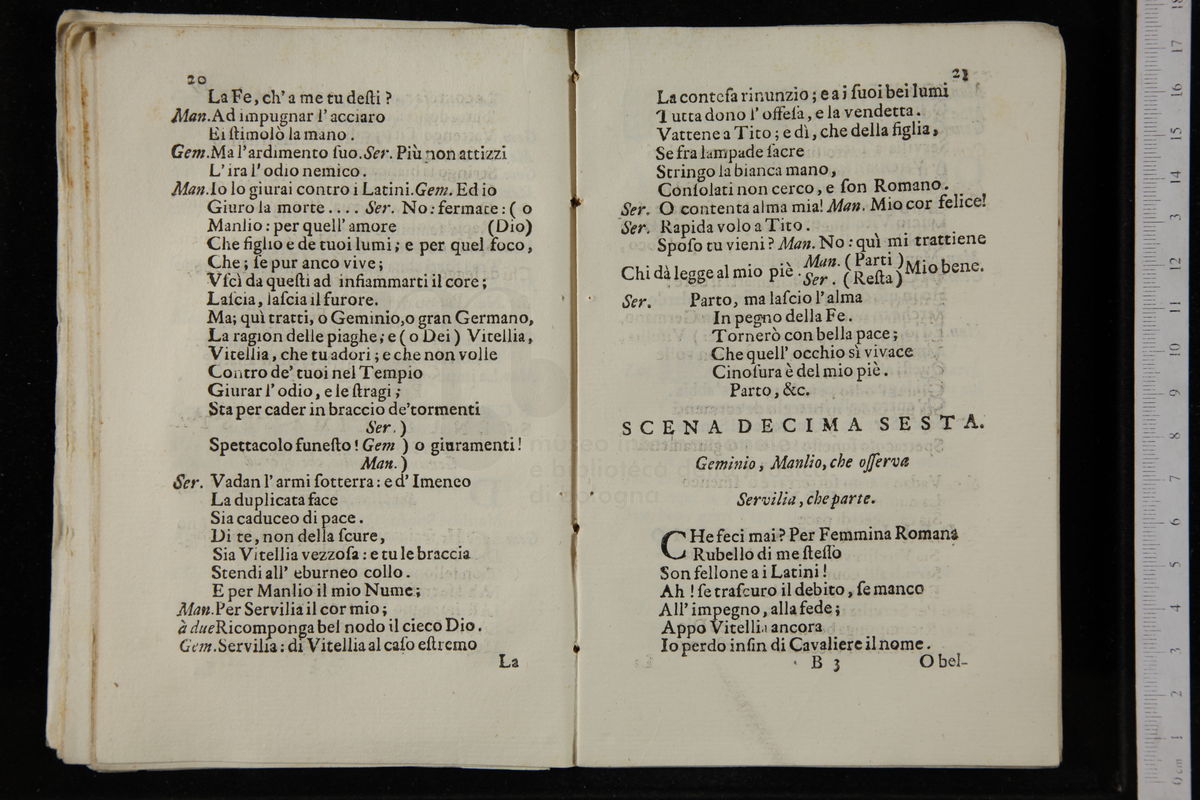 20
La Fe, ch' a me tu deſti ?
Man.Ad impugnar l' acciaro
Ei ſtimolò la mano .
Gem.Ma l'ardimento ſuo.Ser. Più non attizzi
L' ira l' odio nemico .
Man.Io lo giurai contro i Latini.Gem. Ed io
Giuro la morte .... Ser. No : fermate : ( o
Manlio : per quell' amore (Dio)
Che figlio e de tuoi lumi ; e per quel foco,
Che ; ſe pur anco vive ;
Vſcì da queſti ad infiammarti il core ;
Laſcia, laſcia il furore.
Ma; quì tratti, o Geminio,o gran Germano,
La ragion delle piaghe; e ( o Dei ) Vitellia,
Vitellia, che tu adori ; e che non volle
Contro de' tuoi nel Tempio
Giurar l' odio, e le ſtragi ;
Sta per cader in braccio de'tormenti
Ser. )
Spettacolo funeſto ! Gem ) o giuramenti !
Man. )
Ser. Vadan l' armi ſotterra : e d' Imeneo
La duplicata face
Sia caduceo di pace .
Di te, non della ſcure,
Sia Vitellia vezzoſa : e tu le braccia
Stendi all' eburneo collo .
E per Manlio il mio Nume ;
Man.Per Servilia il cor mio ;
à due Ricomponga bel nodo il cieco Dio .
Gem.Servilia : di Vitellia al caſo eſtremo
La
21
La conteſa rinunzio ; e a i ſuoi bei lumi
Tutta dono l' offeſa, e la vendetta .
Vattene a Tito ; e dì, che della figlia,
Se fra lampade ſacre
Stringo la bianca mano,
Conſolati non cerco, e ſon Romano .
Ser. O contenta alma mia! Man. Mio cor felice!
Ser. Rapida volo a Tito .
Spoſo tu vieni ? Man. No : quì mi trattiene
Chi dà legge al mio piè . Man. ( Parti ) Mio bene.
Ser . ( Reſta )
Ser. Parto, ma laſcio l' alma
In pegno della Fe .
Tornerò con bella pace ;
Che quell' occhio sì vivace
Cinoſura è del mio piè .
Parto, &c.
SCENA DECIMA SESTA.
Geminio, Manlio, che oſſerva
Servilia, che parte.
CHe feci mai ? Per Femmina Romana
Rubello di me ſteſſo
Son fellone a i Latini !
Ah ! ſe traſcuro il debito, ſe manco
All' impegno, alla fede ;
Appo Vitellia ancora
Io perdo inſin di Cavaliere il nome .
B 3 O bel-